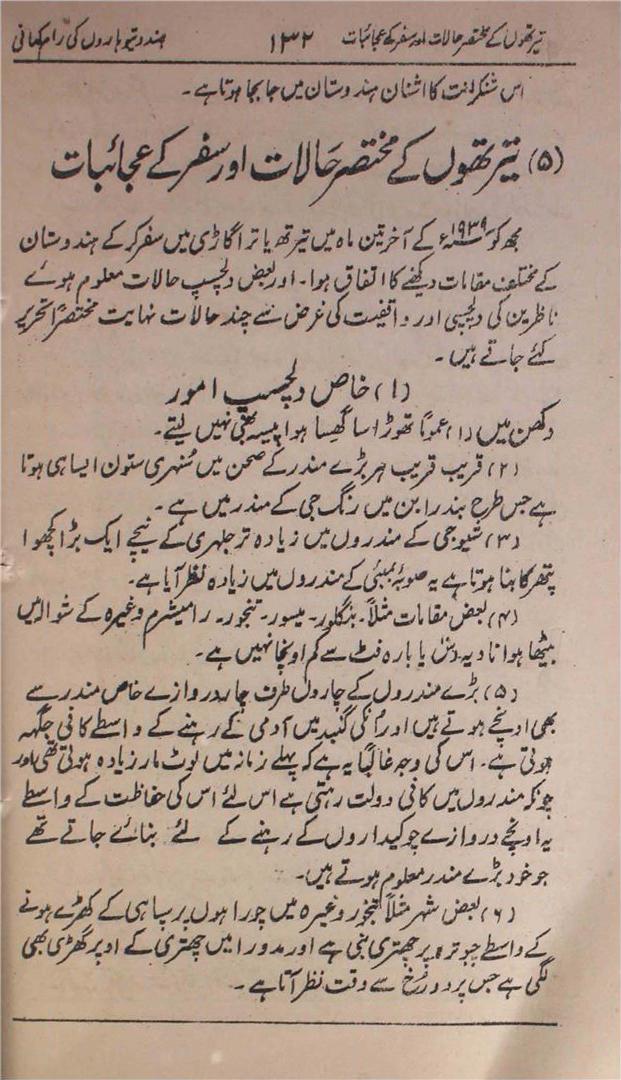 تیرتھوں کے مختصر حالات اور سفر کے عجائبات ۱۳۲ ہندو تیوہاروں کی رام کہانی
اس شنکرانت کا اشنان ہندوستان میں جابجا ہوتا ہے۔
(۵) تیرتھوں کے مختصر حالات اور سفر کے عجائبات
مجھ کو ۱۹۳۹ء کے آخر تین ماہ میں تیرتھ یاترا گاڑی میں سفر کر کے ہندوستان
کے مختلف مقامات دیکھنے کا اتفاق ہوا۔ اور بعض دلچسپ حالات معلوم ہوئے
ناظرین کی دلچسپی اور واقفیت کی غرض سے چند حالات نہایت مختصراً تحریر
کئے جاتے ہیں۔
(۱) خاص دلچسپ امور
دکھن میں (۱) عموماً تھوڑا سا گھسا ہوا پیسہ بھی نہیں لیتے۔
(۲) قریب قریب ہر بڑے مندر کے صحن میں سُنہری ستون ایسا ہی ہوتا
ہے جس طرح بندرابن میں رنگ جی کے مندر میں ہے۔
(۳) شیوجی کے مندروں میں زیادہ تر جلہری کے نیچے ایک بڑا کچھوا
پتھر کا بنا ہوتا ہے یہ صوبہ بمبئی کے مندروں میں زیادہ نظر آیا ہے۔
(۴) بعض مقامات مثلاً۔ بنگلور۔ میسور۔ تنجور۔ رامیشرم وغیرہ کے شوالہ میں
بیٹھا ہوا نادیہ دس یا بارہ فٹ سے کم اونچا نہیں ہے۔
(۵) بڑے مندروں کے چاروں طرف چار دروازے خاص مندر سے
بھی اونچے ہوتے ہیں اور اُنکی گنبد میں آدمی کے رہنے کے واسطے کافی جگہ
ہوتی ہے۔ اس کی وجہ غالباً یہ ہے کہ پہلے زمانہ میں لوٹ مار زیادہ ہوتی تھی اور
چونکہ مندروں میں کافی دولت رہتی ہے اس لئے اس کی حفاظت کے واسطے
یہ اونچے دروازے چوکیداروں کے رہنے کے لئے بنائے جاتے تھے
جو خود بڑے مندر معلوم ہوتے ہیں۔
(۶) بعض شہر مثلاً تنجور وغیرہ میں چوراہوں پر سپاہی کے کھڑے ہونے
کے واسطے چبوترہ پر چھتری بنی ہے اور مدورا میں چھتری کے اوپر گھڑی بھی
لگی ہے جس پر دو رُخ سے وقت نظر آتا ہے۔